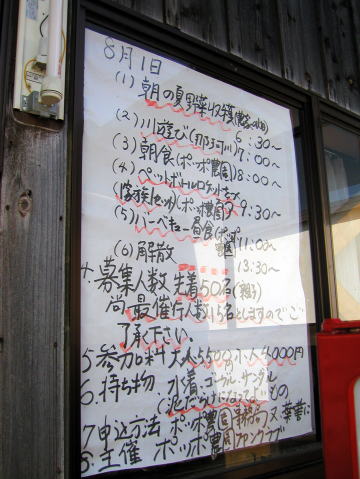 8月1日
(1)朝の夏野菜収穫(農家の畑)
6:30〜
(2)川遊び(那珂川)7:00〜
(3)朝食(ポッポ農園)8:00〜
(4)ペットボトルロケット
(家族1セット)(ポッポ農園)9:30〜
(5)バーベキュー昼食(ポッポ農園)11:00〜
(6)解散 13:30〜
4.募集人数 先着50名(親子)
尚最催行人数15名としますのでご
了承下さい。
5 参加料 大人5500円 小人4000円
6.持ち物 水着、ゴーグル、サンダル
(泥だらけになってよいもの
7申込方法 ポッポ農園事務局又
8.主催 ポッポ農園ファンクラブ